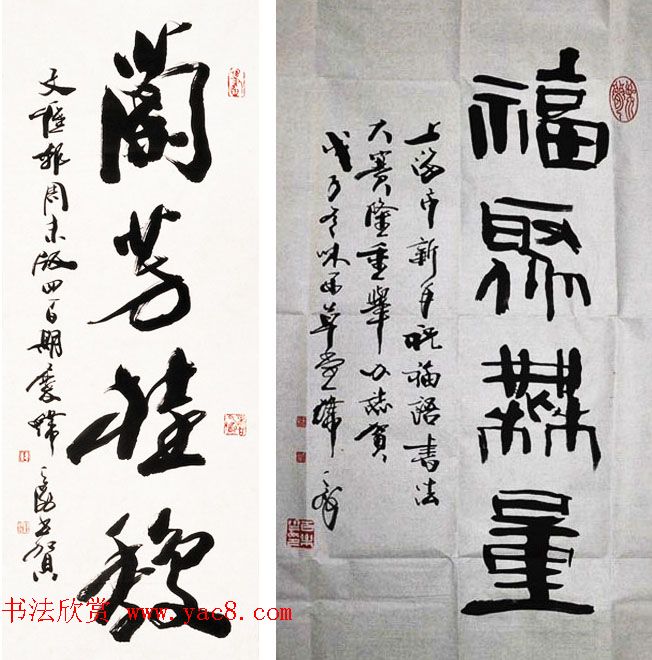 蘭芳桂馥
文匯報周末版四百期慶
書賀
福聚無量
上海市新年祝福語書法
大賽隆重舉办誌賀
戊子
草堂
书法欣赏 www.yac8.com